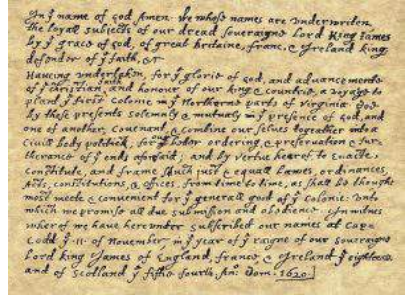 In yͤ name of god Amen. We whose names are underwriten,
the loyall subjects of our dread soveraigne Lord King James
by yͤ grace of god, of great Britaine, franc, & Ireland king,
defendor of yͤ faith, &c
Haveing undertaken, for yͤ glorie of god, and advancemente
of yͤ christian faith and honour of our king & countrie, a voyage to
plant yͤ first colonie in yͤ Northerne parts of Virginia. Doe
by these presents solemnly & mutualy in yͤ presence of god, and
one of another, covenant, & combine our selves togeather into a
Civill body politick, for our better ordering, & preservation & fur-
therance of yͤ ends aforesaid; and by vertue hearof to Enacte,
constitute, and frame shuch just & equall Lawes, ordinances,
Acts, constitutions, & offices, from time to time, as shall be thought
most meete & convenient for yͤ generall good of yͤ Colonie: Unto
which we promise all due submission and obedience. In witnes
wherof we have hereunder subscribed our names at Cap-
Codd yͤ ·11· of November, in yͤ year of yͤ raigne of our soveraigne
Lord king James of England, franc, & Ireland yͤ eighteen
and of Scotland yͤ fiftie fourth. Anº Dom. 1620.